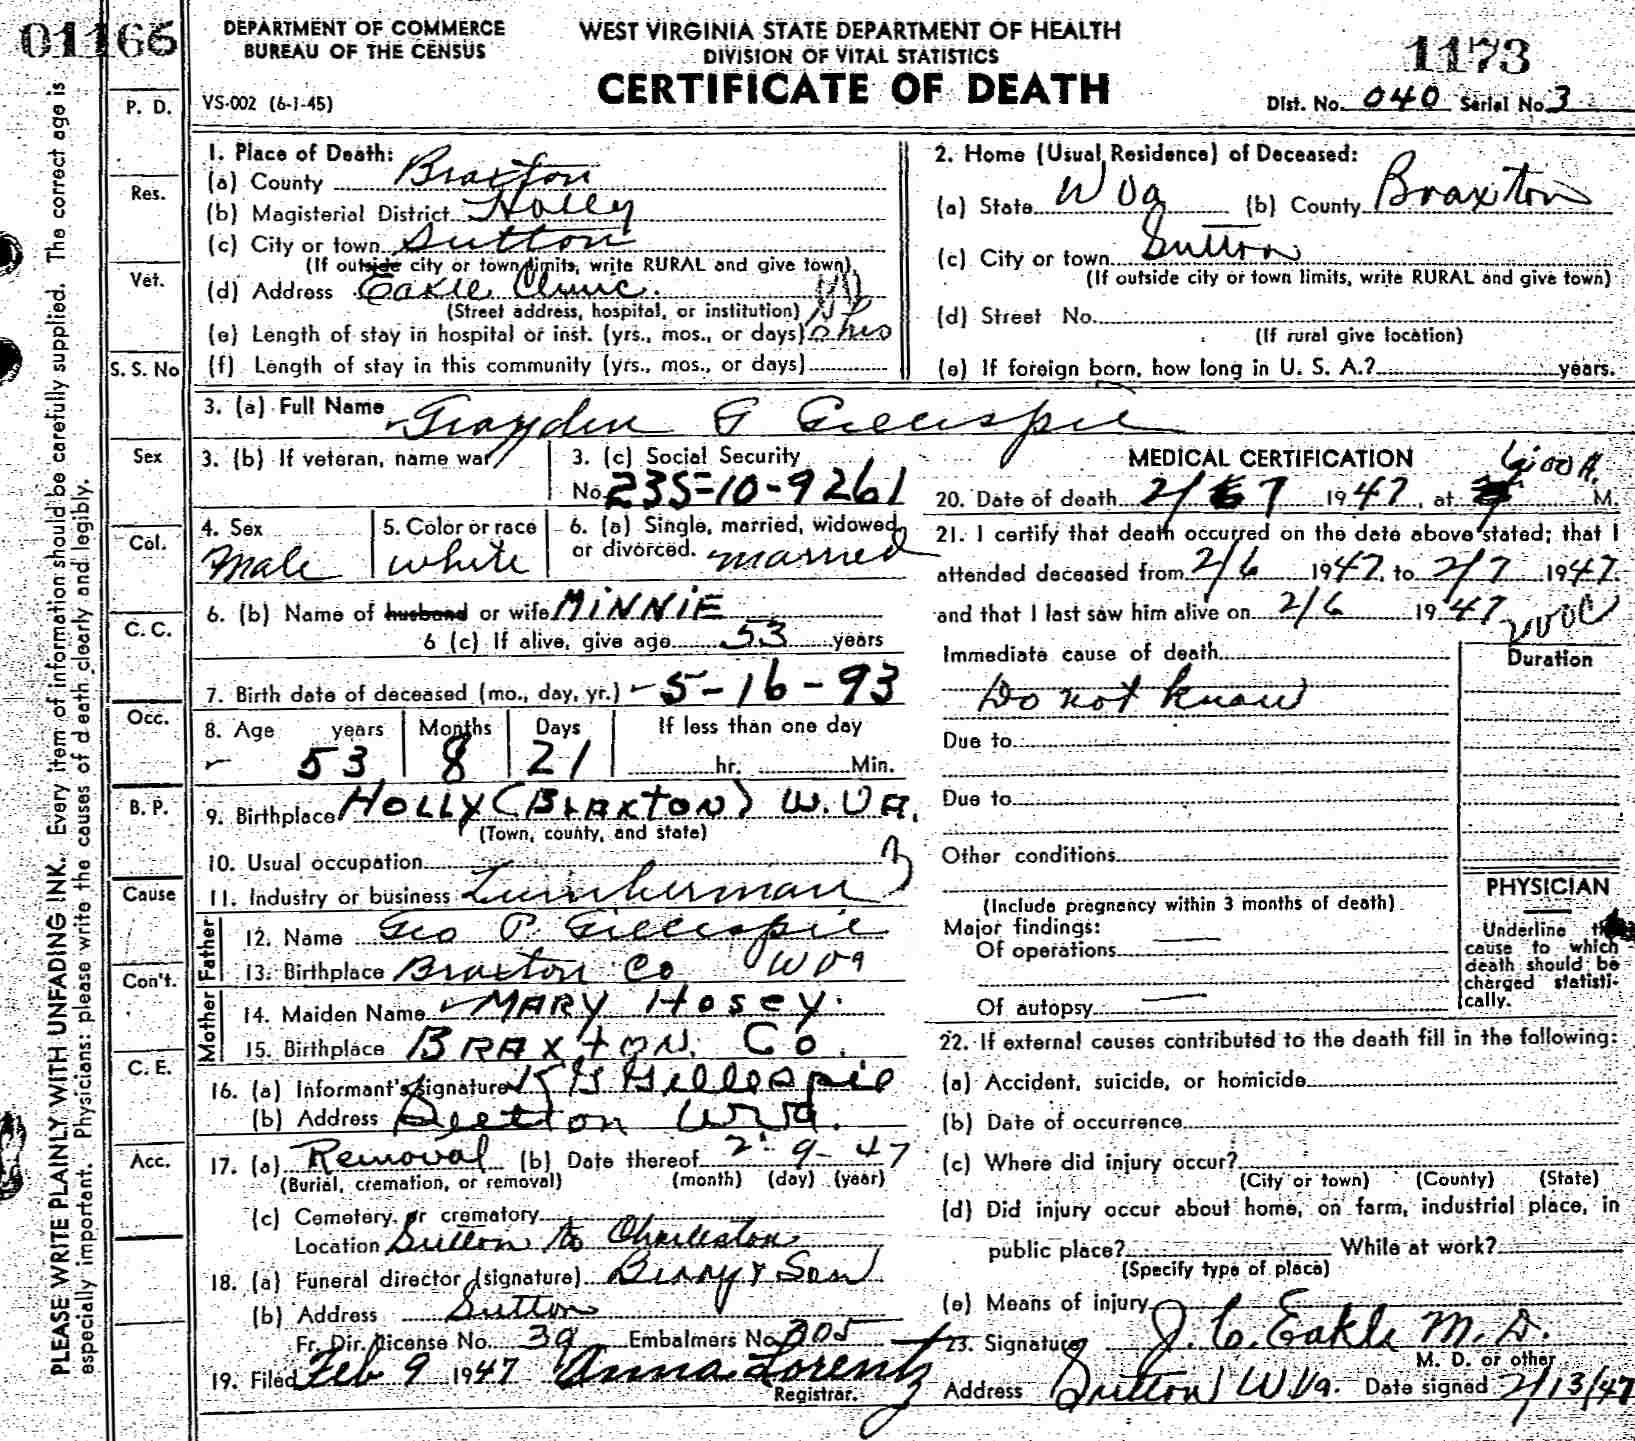 01166
DEPARTMENT OF COMMERCE
BUREAU OF THE CENSUS
VS-002 (6-1-45)
WEST VIRGINIA STATE DEPARTMENT OF HEALTH
DIVISION OF VITAL STATISTICS
CERTIFICATE OF DEATH
1173
Dist. No. 040 Serial No. 3
PLEASE WRITE PLAINLY WITH UNFADING INK. Every item of information should be carefully supplied. The correct age is
especially important. Physicians: please write the causes of death clearly and legibly.
P. D.
Res.
Vet.
S. S. No
Sex
Col.
C. C.
Occ.
B. P.
Cause
Con't.
C. E.
Acc.
1. Place of Death:
(a) County Braxton
(b) Magisterial District Holly
(c) City or town Sutton
(If outside city or town limits, write RURAL and give town)
(d) Address Eakle Clinic.
(Street address, hospital, or institution)
(e) Length of stay in hospital or inst. (yrs., mos., or days) 8 hrs
(f) Length of stay in this community (yrs., mos., or days)
2. Home (Usual Residence) of Deceased:
(a) State W Va (b) County Braxton
(c) City or town Sutton
(If outside city or town limits, write RURAL and give town)
(d) Street No.
(If rural give location)
(e) If foreign born, how long in U. S. A.? years.
3. (a) Full Name Grayden G Gillispie
3. (b) If veteran, name war
3. (c) Social Security
No. 235-10-9261
4. Sex
Male
5. Color or race
white
6. (a) Single, married, widowed,
or divorced. married
6. (b) Name of husband or wife MINNIE
6 (c) If alive, give age 53 years
7. Birth date of deceased (mo., day, yr.) 5-16-93
8. Age years Months Days If less than one day
53 8 21 hr. Min.
9. Birthplace HOLLY (BRAXTON) W.VA.
(Town, county, and state)
10. Usual occupation
11. Industry or business Lumberman
Father
12. Name Geo P. Gillespie
13. Birthplace Braxton Co W Va
Mother
14. Maiden Name MARY Hosey.
15. Birthplace BRAXTON. Co.
16. (a) Informant's signature K G Gillespie
(b) Address Sutton W Va.
17. (a) Removal (b) Date thereof 2-9-47
(Burial, cremation, or removal) (month) (day) (year)
(c) Cemetery, or crematory
Location Sutton to Charleston
18. (a) Funeral director (signature) Berry & Son
(b) Address Sutton
Fr. Dir. license No. 39 Embalmers No. 305
19. Filed Feb 9 1947 Anna Lorentz
Registrar.
MEDICAL CERTIFICATION
6:00 A.
20. Date of death 2/7 1947, at M.
21. I certify that death occurred on the date above stated; that I
attended deceased from 2/6 1947, to 2/7 1947.
and that I last saw him alive on 2/6 1947
200C
Immediate cause of death
Duration
Do not know
Due to
Due to
Other conditions
(Include pregnancy within 3 months of death)
Major findings:
Of operations
Of autopsy
PHYSICIAN
Underline the
cause to which
death should be
charged statisti-
cally.
22. If external causes contributed to the death fill in the following:
(a) Accident, suicide, or homicide
(b) Date of occurrence
(c) Where did injury occur?
(City or town) (County) (State)
(d) Did injury occur about home, on farm, industrial place, in
public place? While at work?
(Specify type of place)
(e) Means of injury
23. Signature J. C. Eakle M. D.
M. D. or other
Address Sutton W Va. Date signed 2/13/47